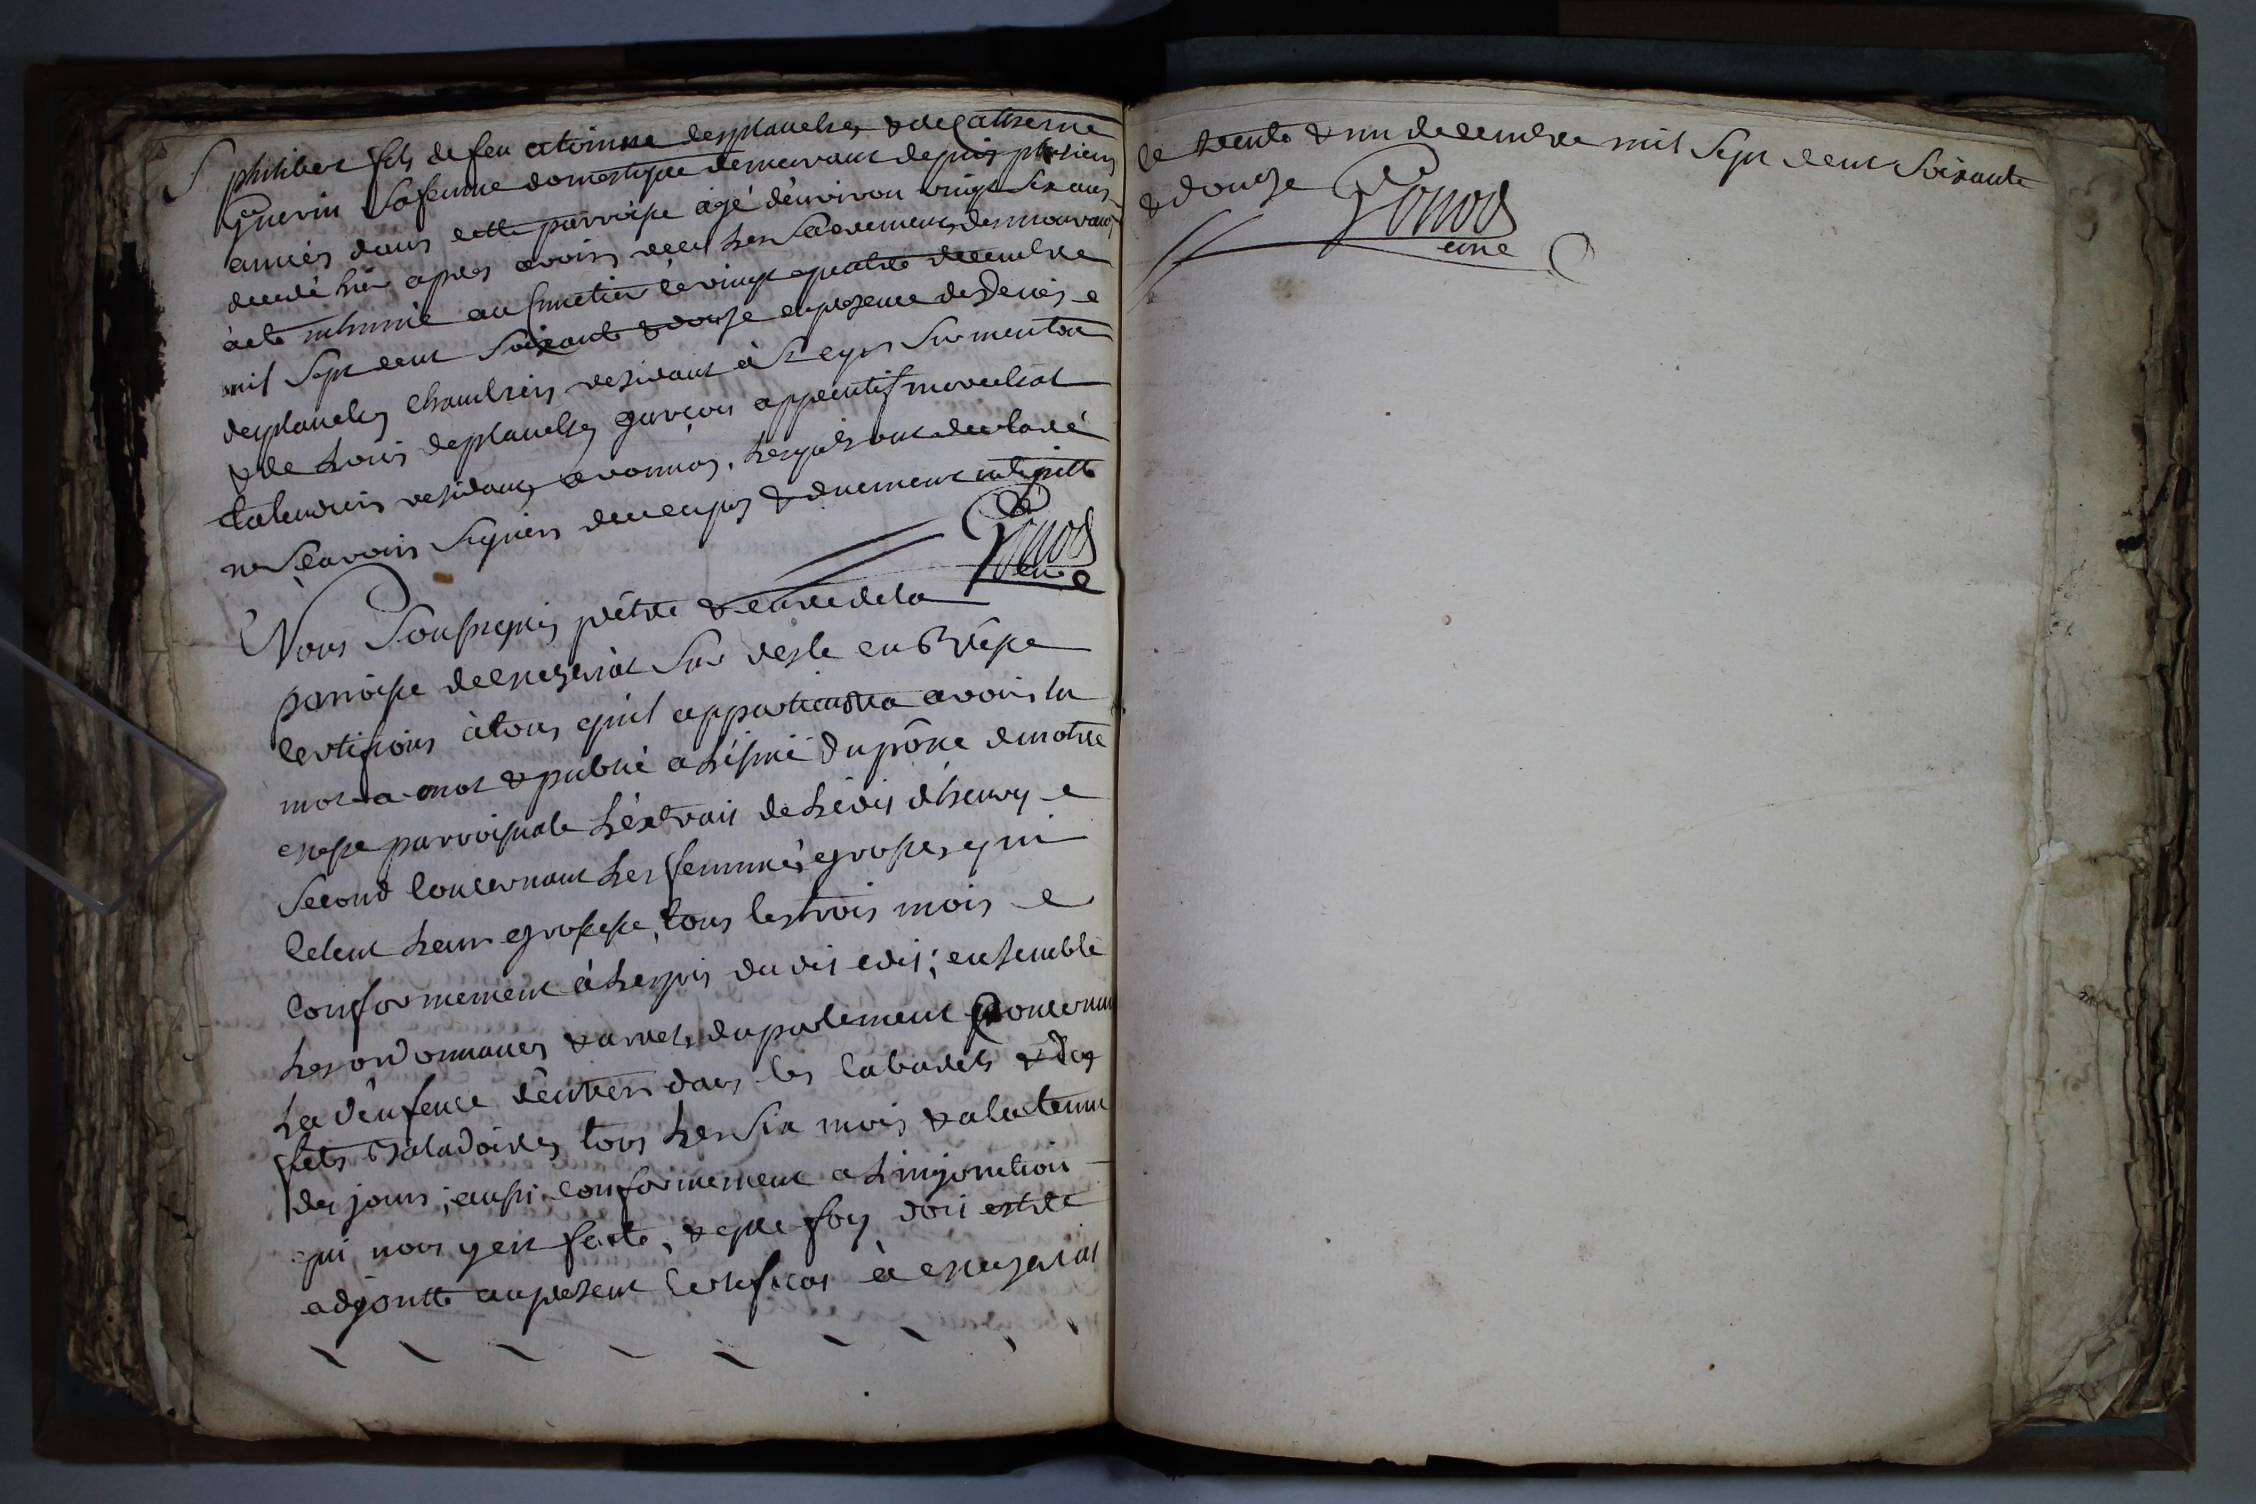 S philibert fils de feu etoinne desplanches & de Catherine
Guerin sa femme domestique demeurant depuis plusieurs
années dans cette parroisse agé d'environ vingt six ans
decedé hier apres avoir reçu les sacremens des mourans
a eté inhumé au Cimetier le vingt quatre decembre
mil sept cent soixante & douze en presence de Denis
desplanches chambrier residant à St Cyr sur menton
& de Louis desplanches garçon appentif marechal
residant a vonnas, lesquels ont declaré
ne sçavoir signer de ce enquis & duement interpellé
Gonod
curé
Nous soussignés prêtre & curé de la
parroisse de mezeriat sur vesle en Bresse
certifions à tous qu'il appartiendra avoir lu
mot a mot & publié a l'issuë du prône de notre
messe parroissiale l'extrait de l'édit d'henry
second concernant les femmes grosses qui
celent leur grossesse, tous les trois mois
conformement à l'esprit du dit edit; ensemble
les ordonnances & arrets du parlement concernant
la deuffence d'entrer dans les cabarets & des
fetes Baladoires tous les six mois & a la tenue
des jours; aussi conformement a l'injonction
qui nous y est faite, & que foy doit estre
adjoutté au present certificat à mezeriat
le trente & un decembre mil sept cent soixante
& douze Gonod
curé